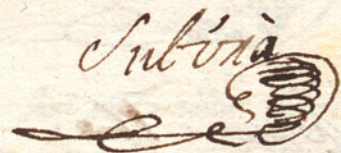 Subirà